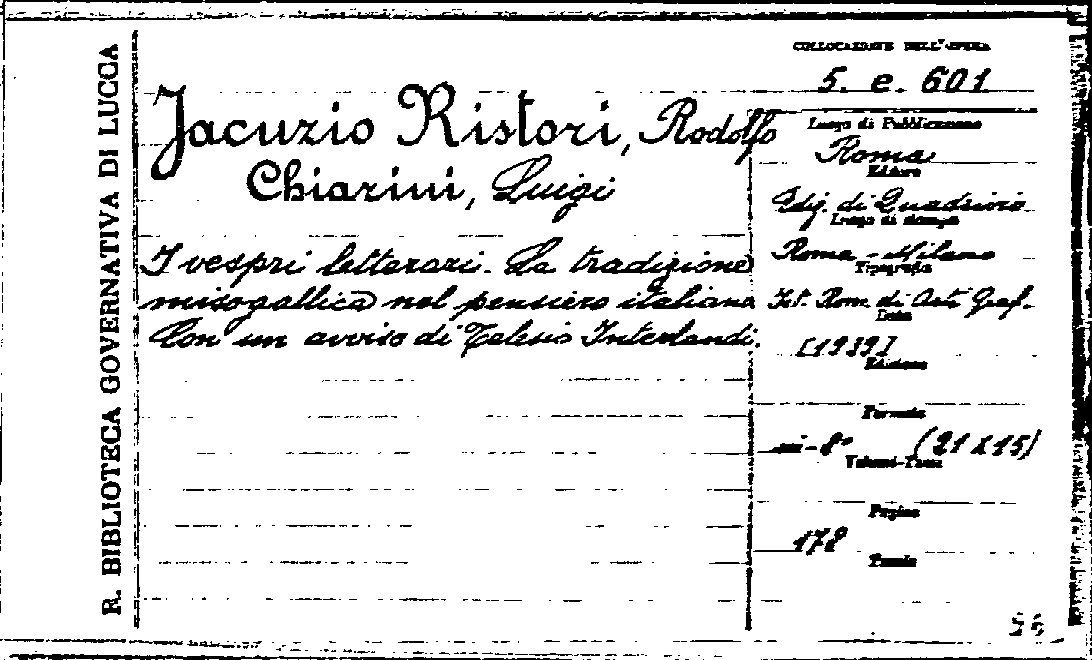 R. BIBLIOTECA GOVERNATIVA DI LUCCA
COLLOCAZIONE DELL'OPERA
5. e. 601
Jacuzio Ristori, Rodolfo
Chiarini, Luigi
I vespri letterari. La tradizione
misogallica nel pensiero italiano
Con un avviso di Telesio Interlandi.
Luogo di Pubblicazione
Roma
Editore
Ediz. di Quadrivio
Luogo di stampa
Roma - Milano
Tipografia
Ist. Rom. di Arti Graf.
Data
[1939]
Edizione
Formato
in-8° (21x15)
Volumi-Tomi
Pagine
178
Tavole